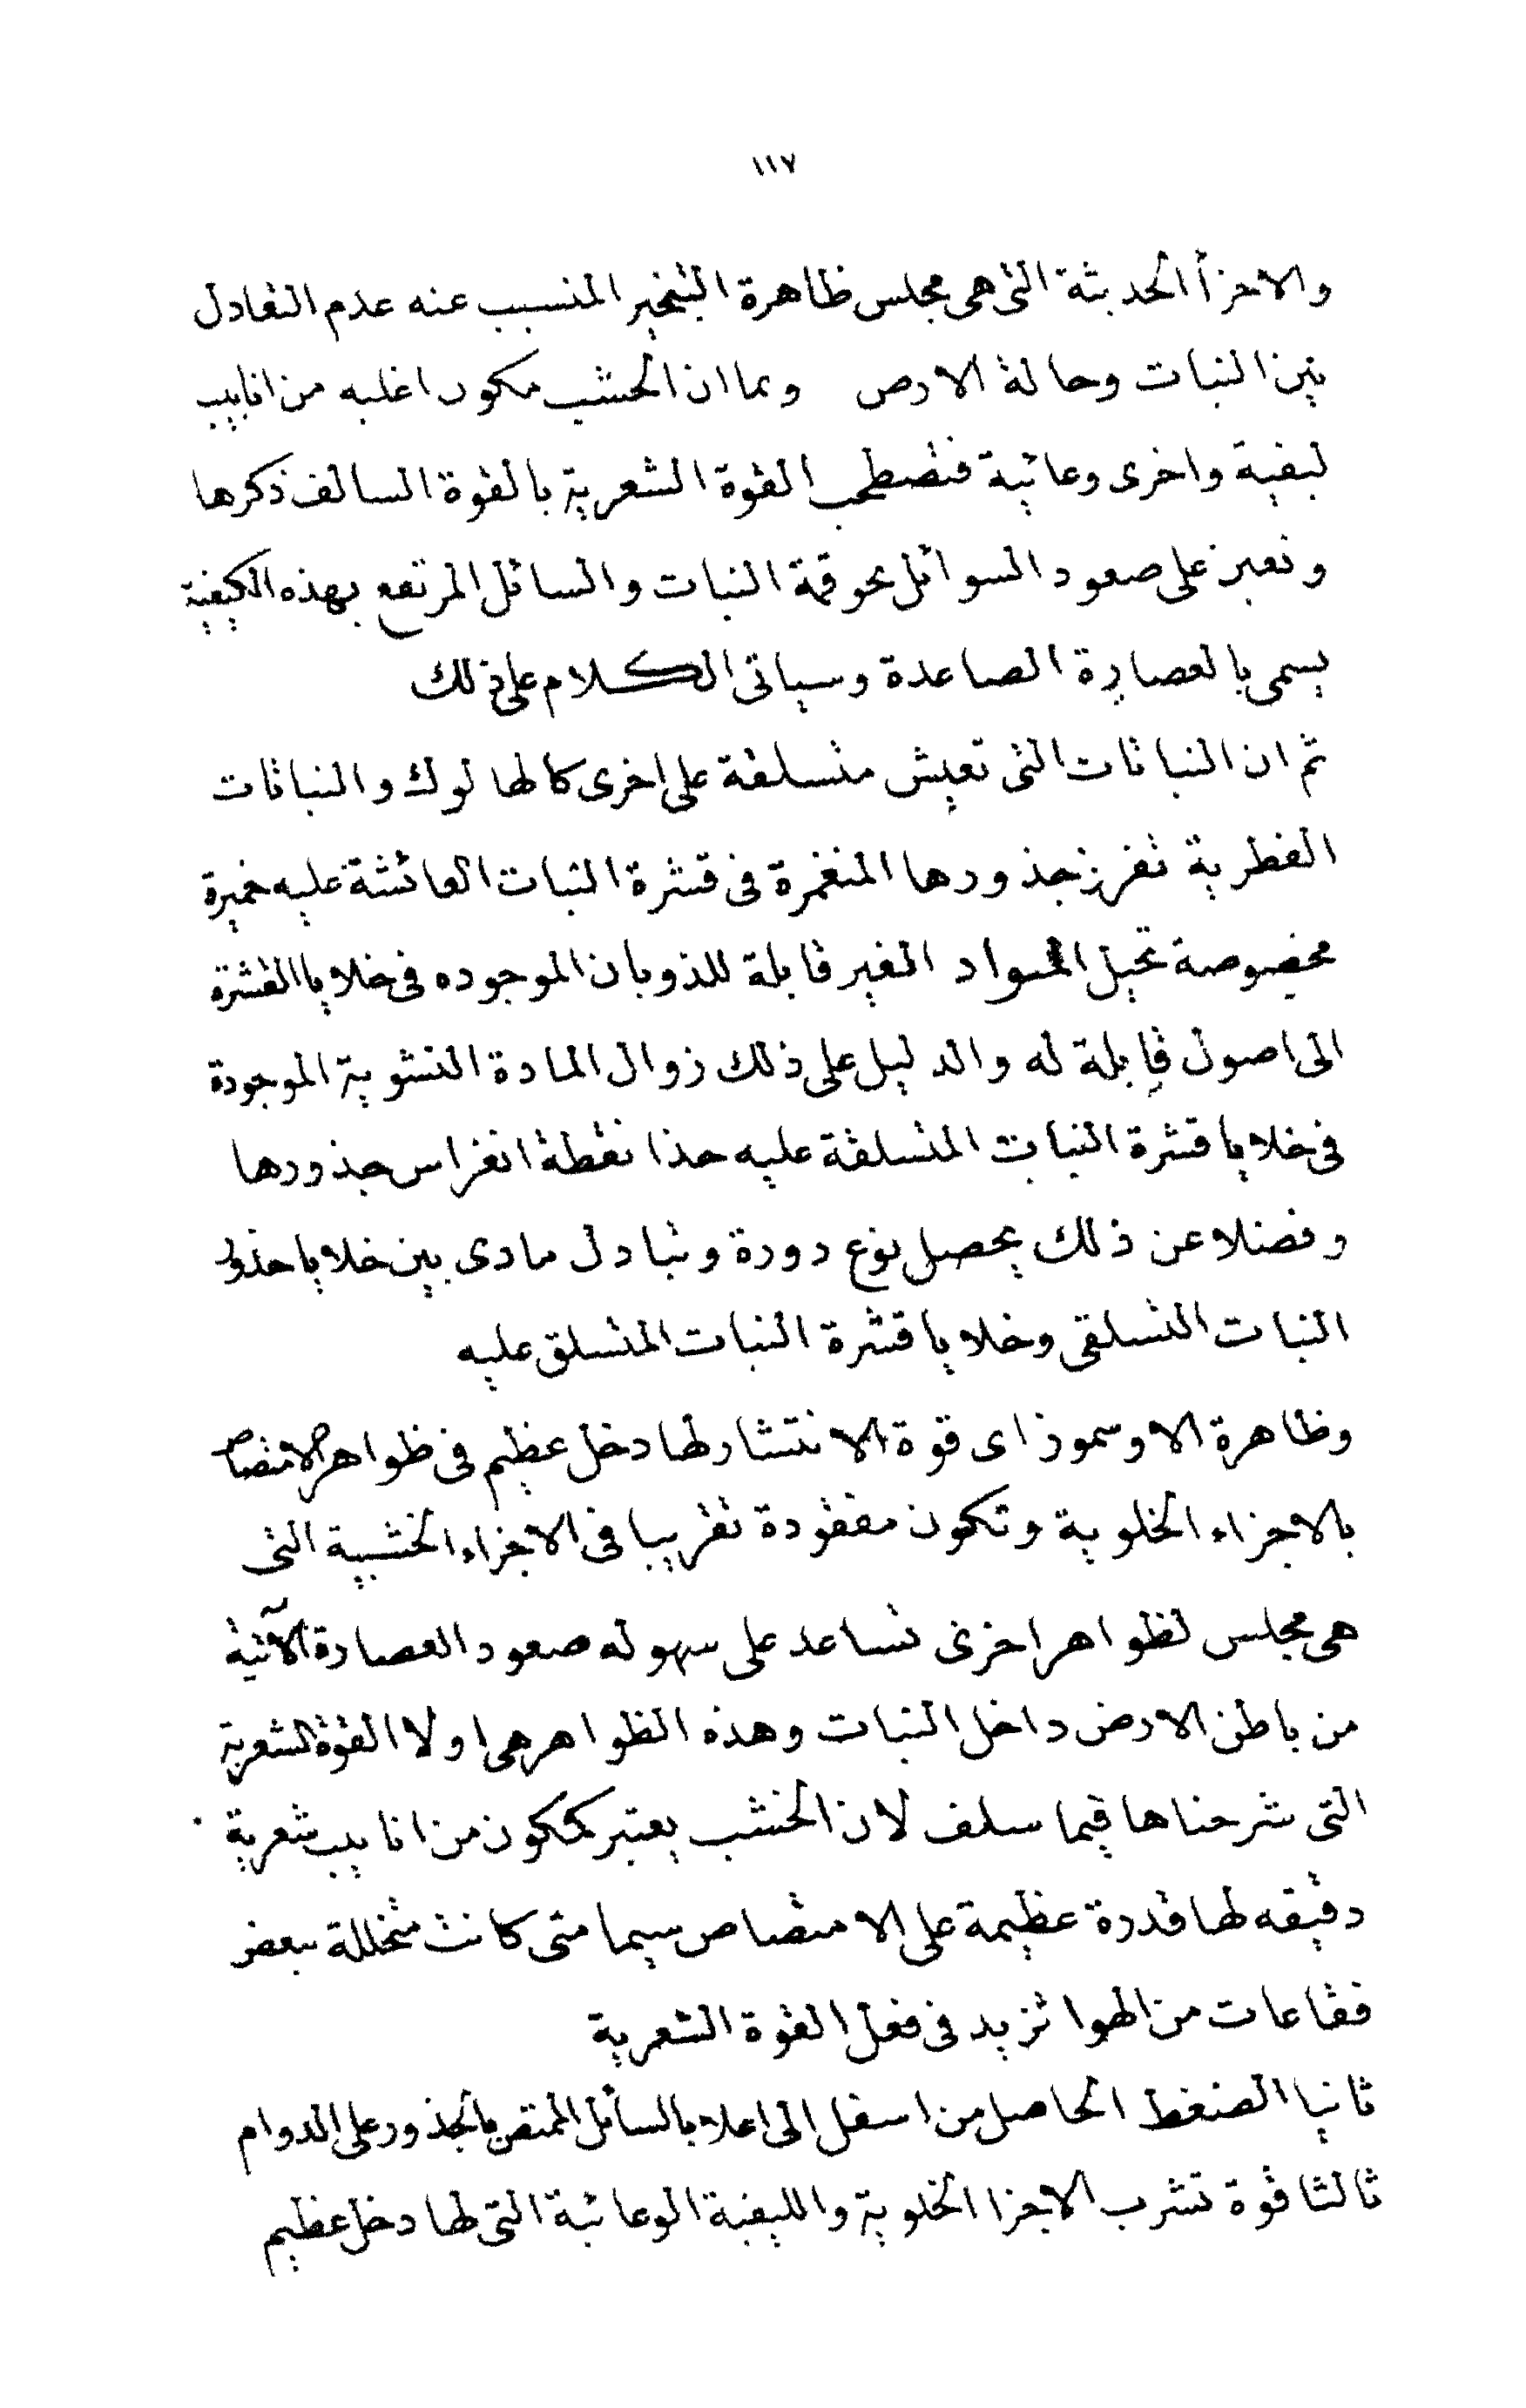 ١١٧
والاجزأ الحديثة التى هى مجلس ظاهرة التبخير المتسبب عنه عدم التعادل
بين النبات وحالة الارض وبما ان الخشب مكون اغلبه من انابيب
ليفية واخرى وعائية فتصطحب القوة الشعرية بالقوة السالف ذكرها
وتعين على صعود السوائل نحو قمة النبات والسائل المرتفع بهذه الكيفية
يسمى بالعصارة الصاعدة وسياتى الكلام على ذلك
ثم ان النباتات التى تعيش متسلقة على اخرى كالهالوك والنباتات
الفطرية تفرز جذورها المنغمرة فى قشرة النبات العائشة عليه خميرة
مخصوصة تحيل المواد الغير قابلة للذوبان الموجوده فى خلايا القشرة
الى اصول قابلة له والدليل على ذلك زوال المادة النشوية الموجودة
فى خلايا قشرة النبات المتسلقة عليه حذا نقطة انغراس جذورها
وفضلا عن ذلك يحصل نوع دورة وتبادل مادى بين خلايا جذور
النبات التسلقى وخلايا قشرة النبات المتسلق عليه
وظاهرة الاوسموز اى قوة الانتشار لها دخل عظيم فى ظواهر الامتصاص
بالاجزاء الخلوية وتكون مفقودة تقريبا فى الاجزاء الخشبية التى
هى مجلس لظواهر اخرى تساعد على سهوله صعود العصارة الآتية
من باطن الارض داخل النبات وهذه الظواهر هى اولا القوة الشعرية
التى شرحناها فيما سلف لان الخشب يعتبر كمكون من انابيب شعرية
دقيقه لها قدرة عظيمة على الامتصاص سيما متى كانت متخللة ببعض
فقاعات من الهوا تزيد فى فعل القوة الشعرية
ثانيا الضغط الحاصل من اسفل الى اعلا بالسائل الممتص بالجذور على الدوام
ثالثا قوة تشرب الاجزا الخلوية والليفية الوعائية التى لها دخل عظيم